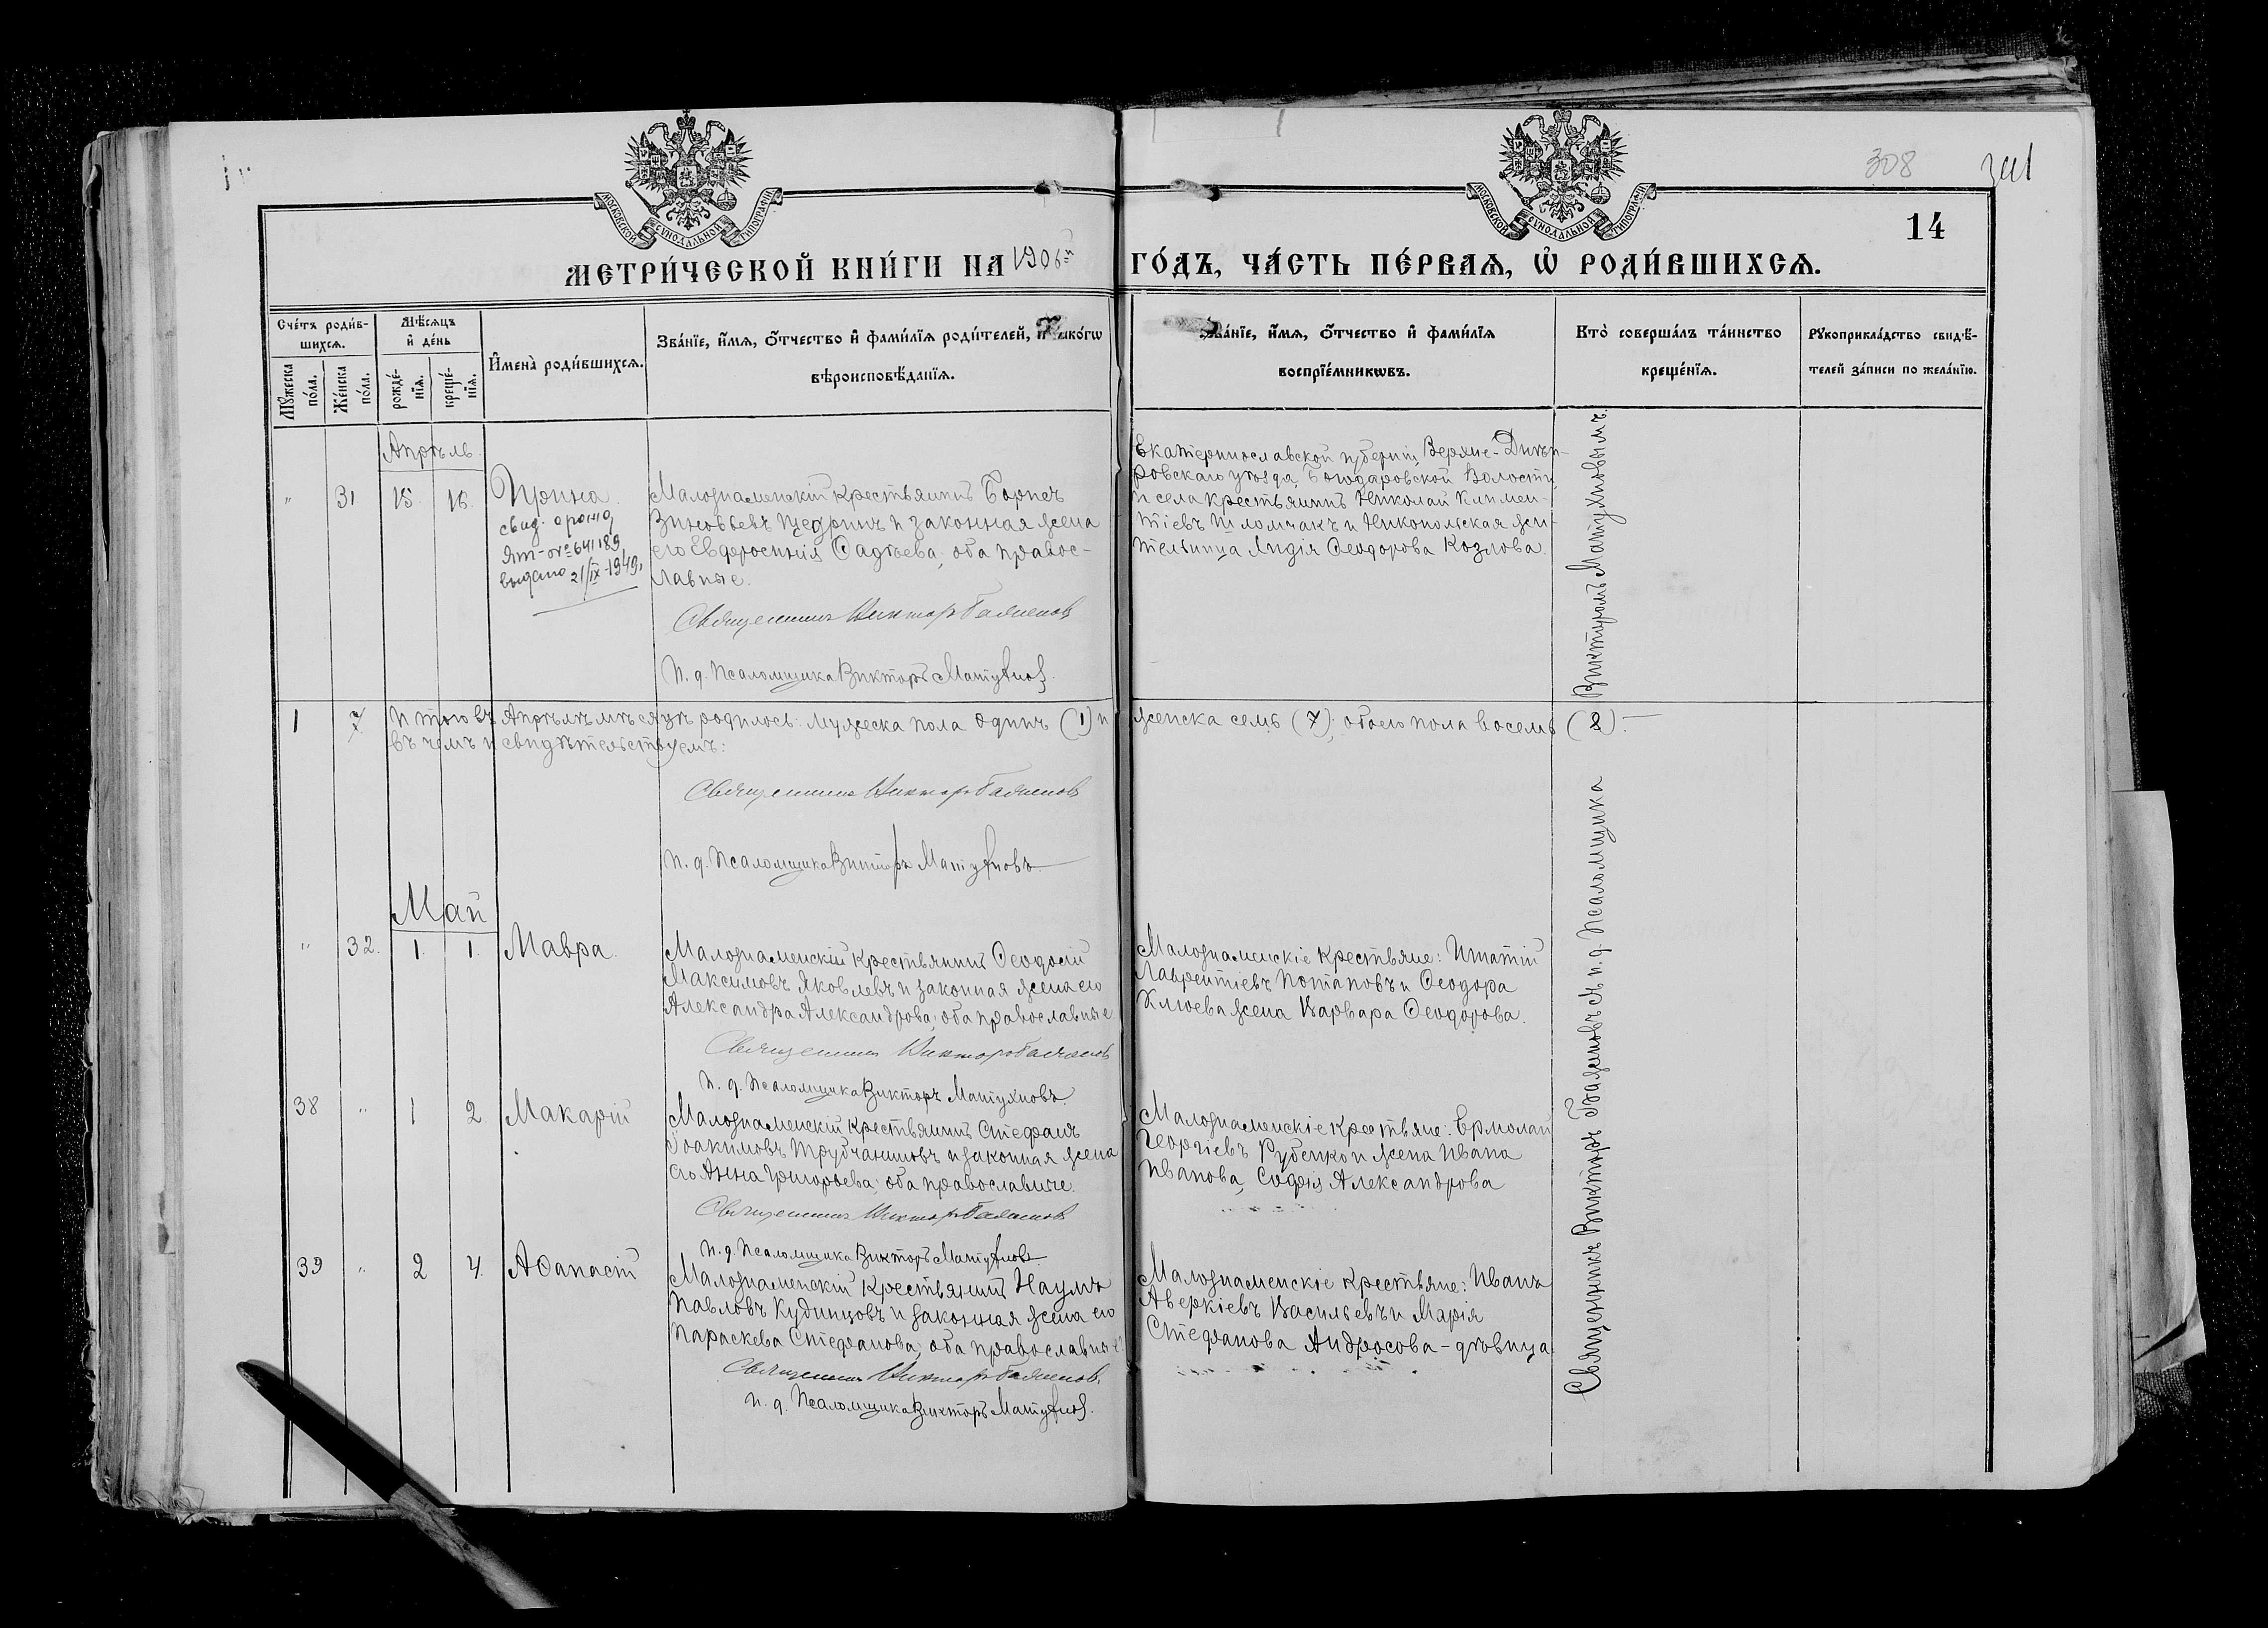 308
341
14
МОСКОВСКОЙ СѴНОДАЛЬНОЙ ТИПОГРАФІИ
МОСКОВСКОЙ СѴНОДАЛЬНОЙ ТИПОГРАФІИ
МЕТРИ́ЧЕСКОЙ КНИ́ГИ НА 1906й ГО́ДЪ, ЧА́СТЬ ПЕ́РВАѦ, Ѡ҆ РОДИ́ВШИХСѦ.
Сче́тъ роди́в-
шихсѧ.
Мꙋ́жеска по́ла.
Же́нска по́ла.
Мѣ́сѧцъ
и҆ де́нь
рожде́-
нїѧ.
креще́-
нїѧ.
И҆мена̀ роди́вшихсѧ.
Зва́нїе, и҆́мѧ, о҆́тчество и҆ фами́лїѧ роди́телей, и҆ како́гѡ
вѣроисповѣ́данїѧ.
Зва́нїе, и҆́мѧ, о҆́тчество и҆ фами́лїѧ
воспрїе́мникѡвъ.
Кто̀ соверша́лъ та́инство
креще́нїѧ.
Рꙋкоприкла́дство свидѣ́-
телей за́писи по жела́нїю.
Апрѣль
" 31. 15. 16. Ирина.
свид. о рожд.
ЯТ-№ 641189
выдано 21/IX-1949г.
Малознаменскій крестьянинъ Борисъ
Зиновьевъ Щедринъ и законная жена
его Евфросинія Фадѣева, оба правос-
лавные.
Священникъ Викторъ Баженовъ
И. д. Псаломщика Викторъ Матухновъ.
Екатеринославской губерніи Верхне-Днѣп-
ровскаго уѣзда, Божедаровской Волости
и села крестьянинъ Николай Климен-
тіевъ Шломчакъ и Никопольская жи-
тельница Лидія Ѳеодорова Козлова.
1 7. Итого въ Апрѣлѣ мѣсяцѣ родилось: мужеска пола одинъ (1) и женска семь (7); обоего пола восемь (8). —
въ чемъ и свидѣтельствуемъ:
Священникъ Викторъ Баженовъ
И. д. Псаломщика Викторъ Матухновъ
Май
" 32. 1. 1. Мавра.
Малознаменскій крестьянинъ Ѳеодосій
Максимовъ Яковлевъ и законная жена его
Александра Александрова; оба православные
Священникъ Викторъ Баженовъ
И. д. Псаломщика Викторъ Матухновъ.
Малознаменскіе крестьяне: Игнатій
Лаврентіевъ Потаповъ и Ѳеодора
Клюева жена Варвара Ѳеодорова.
38 " 1 2 Макарій
Малознаменскій крестьянинъ Стефанъ
Іоакимовъ Трубчаниновъ и законная жена
его Анна Григорьева; оба православные.
Священникъ Викторъ Баженовъ
И. д. Псаломщика Викторъ Матухновъ
Малознаменскіе крестьяне: Ермолай
Георгіевъ Рубенко и жена Ивана
Иванова, Софія Александрова
39 " 2 4. Аѳанасій
Малознаменскій крестьянинъ Наумъ
Павловъ Кудинцовъ и законная жена его
Параскева Стефанова; оба православные
Священникъ Викторъ Баженовъ.
И. д. Псаломщика Викторъ Матухновъ.
Малознаменскіе крестьяне: Иванъ
Аверкіевъ Васильевъ и Марія
Стефанова Андросова - дѣвица.
Священникъ Викторъ Баженовъ съ и. д. Псаломщика Викторомъ Матухновымъ.